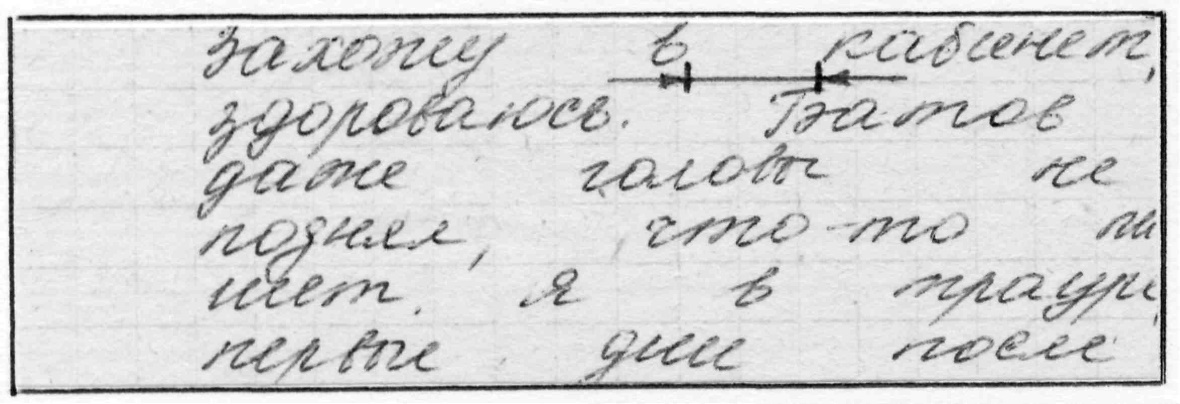 захожу в кабинет,
здороваюсь. Батов
даже головы не
поднял, что-то пи
шет. Я в трауре,
первые дни после